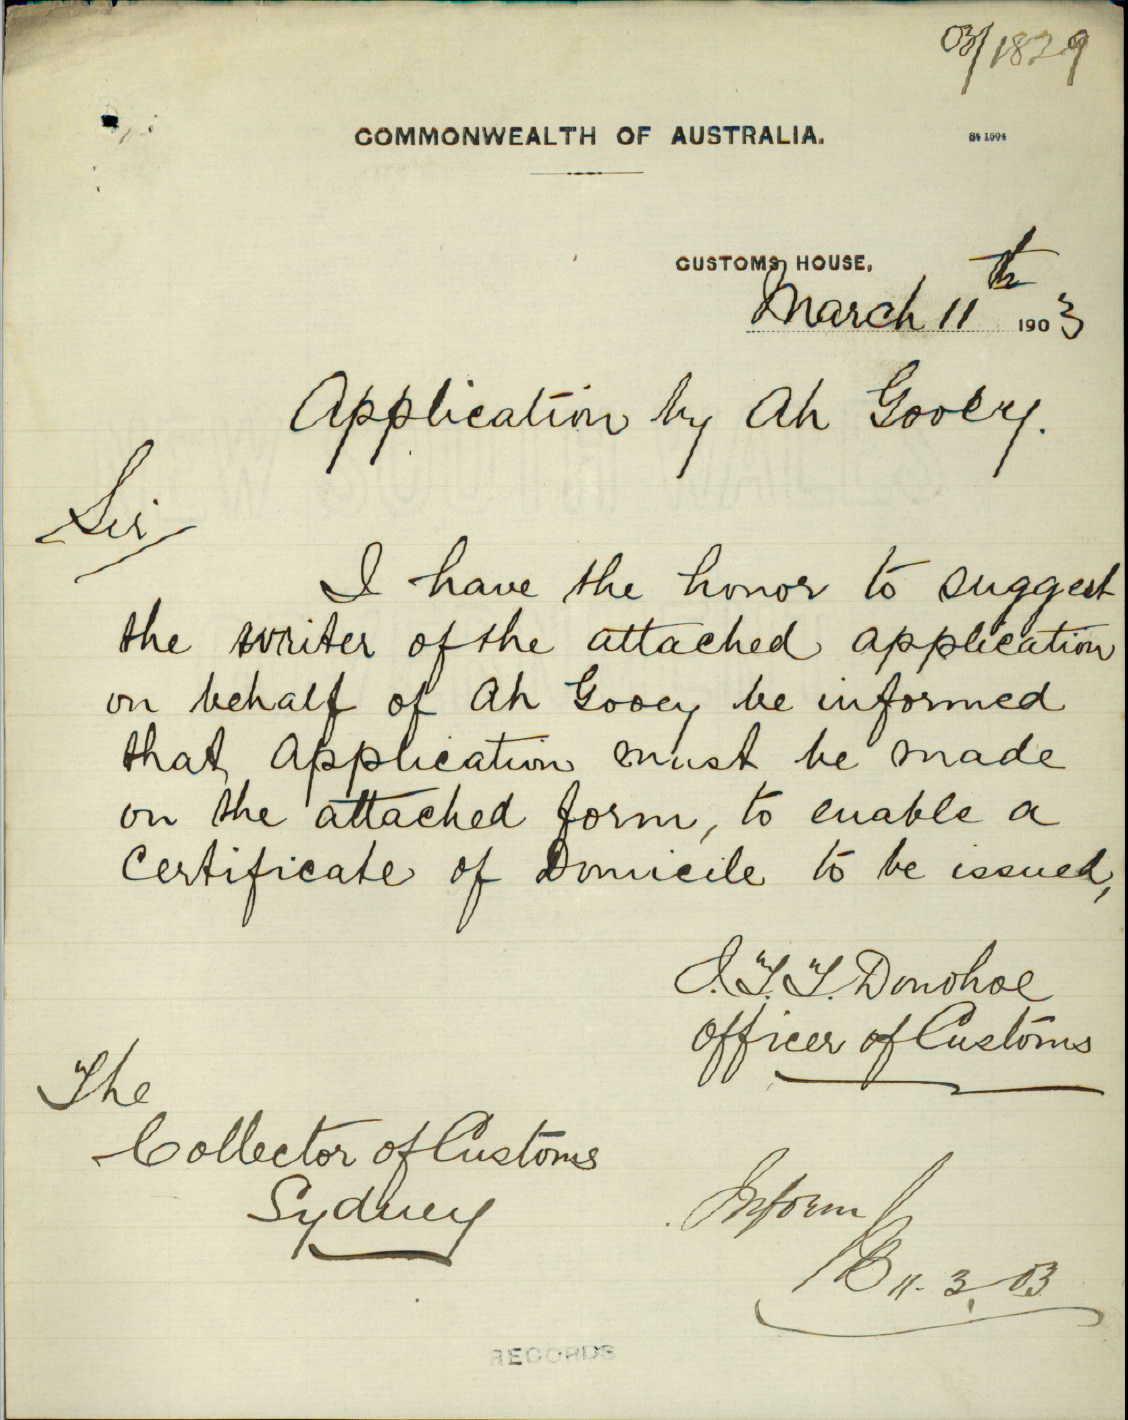 03/1829
COMMONWEALTH OF AUSTRALIA.
CUSTOMS HOUSE,
March 11th 1903
Application by Ah Gooey.
Sir
I have the honor to suggest
the writer of the attached application
on behalf of Ah Gooey be informed
that application must be made
on the attached form, to enable a
Certificate of Domicile to be issued,
J.T.T. Donohoe
Officer of Customs
The
Collector of Customs
Sydney
Inform
11.3.03
RECORDS